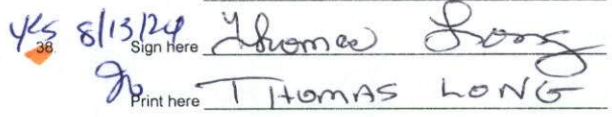 yes 8/13/24 Sign here Thomas Long
38
Print here THOMAS LONG